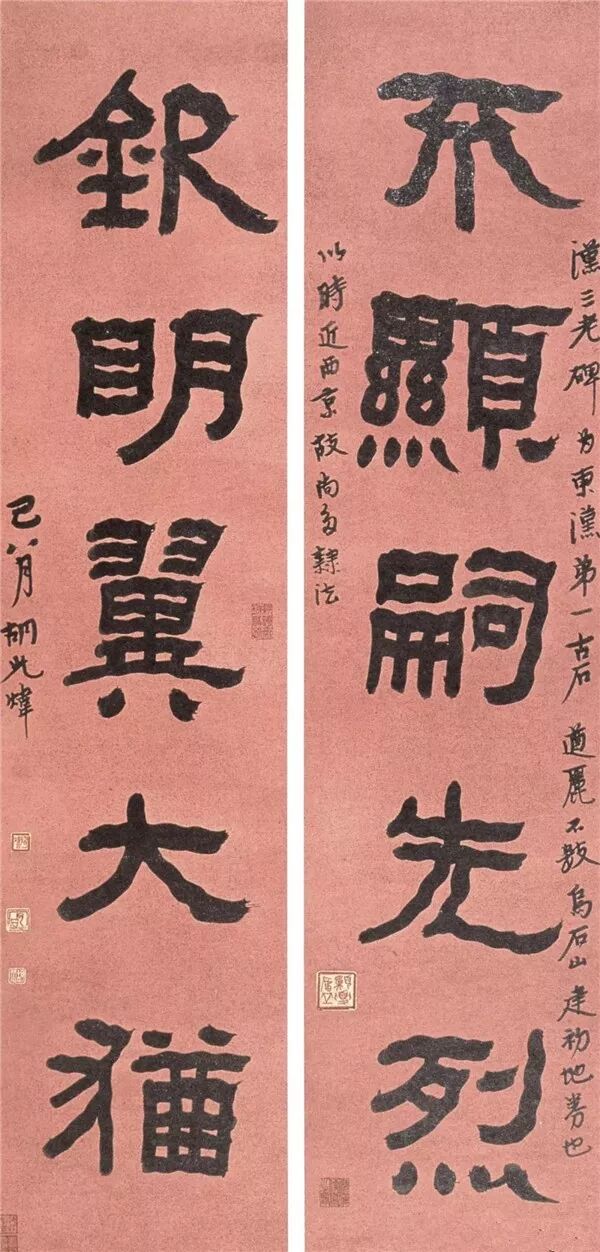 漢三老碑为東漢第一古石遒麗不數烏石山建初地券也
丕顯嗣先烈
以時近西京故尚多隸法
欽明翼大猶
巳八月胡光煒